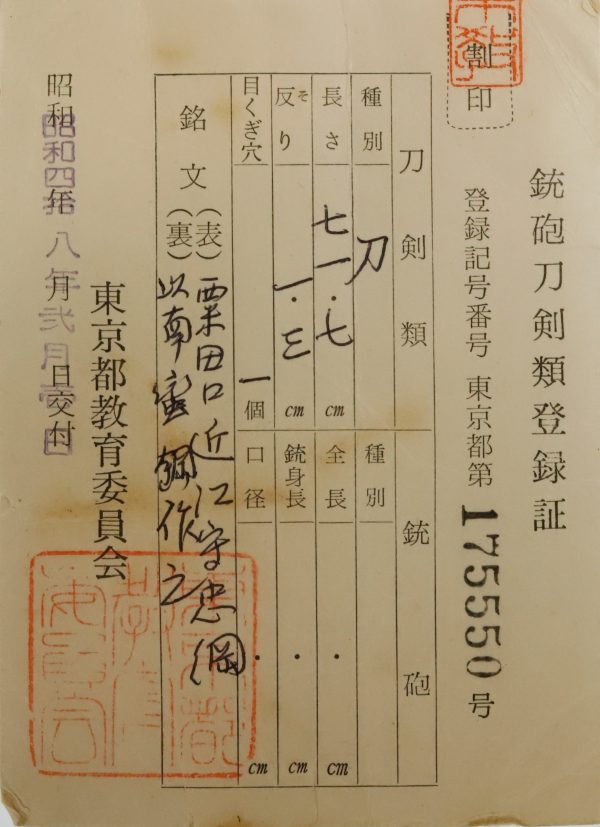 割印
銃砲刀剣類登録証
登録記号番号 東京都第 175550 号
刀剣類 銃砲
種別 刀 種別
長さ 七一・七 cm 全長 ・ cm
反り そ 一・三 cm 銃身長 ・ cm
目くぎ穴 一個 口径 ・ cm
銘文 (表) 粟田口近江守忠綱
(裏) 以南蛮鉄作之
東京都教育委員会
昭和 年 月 日交付
昭和四拾八年弐月